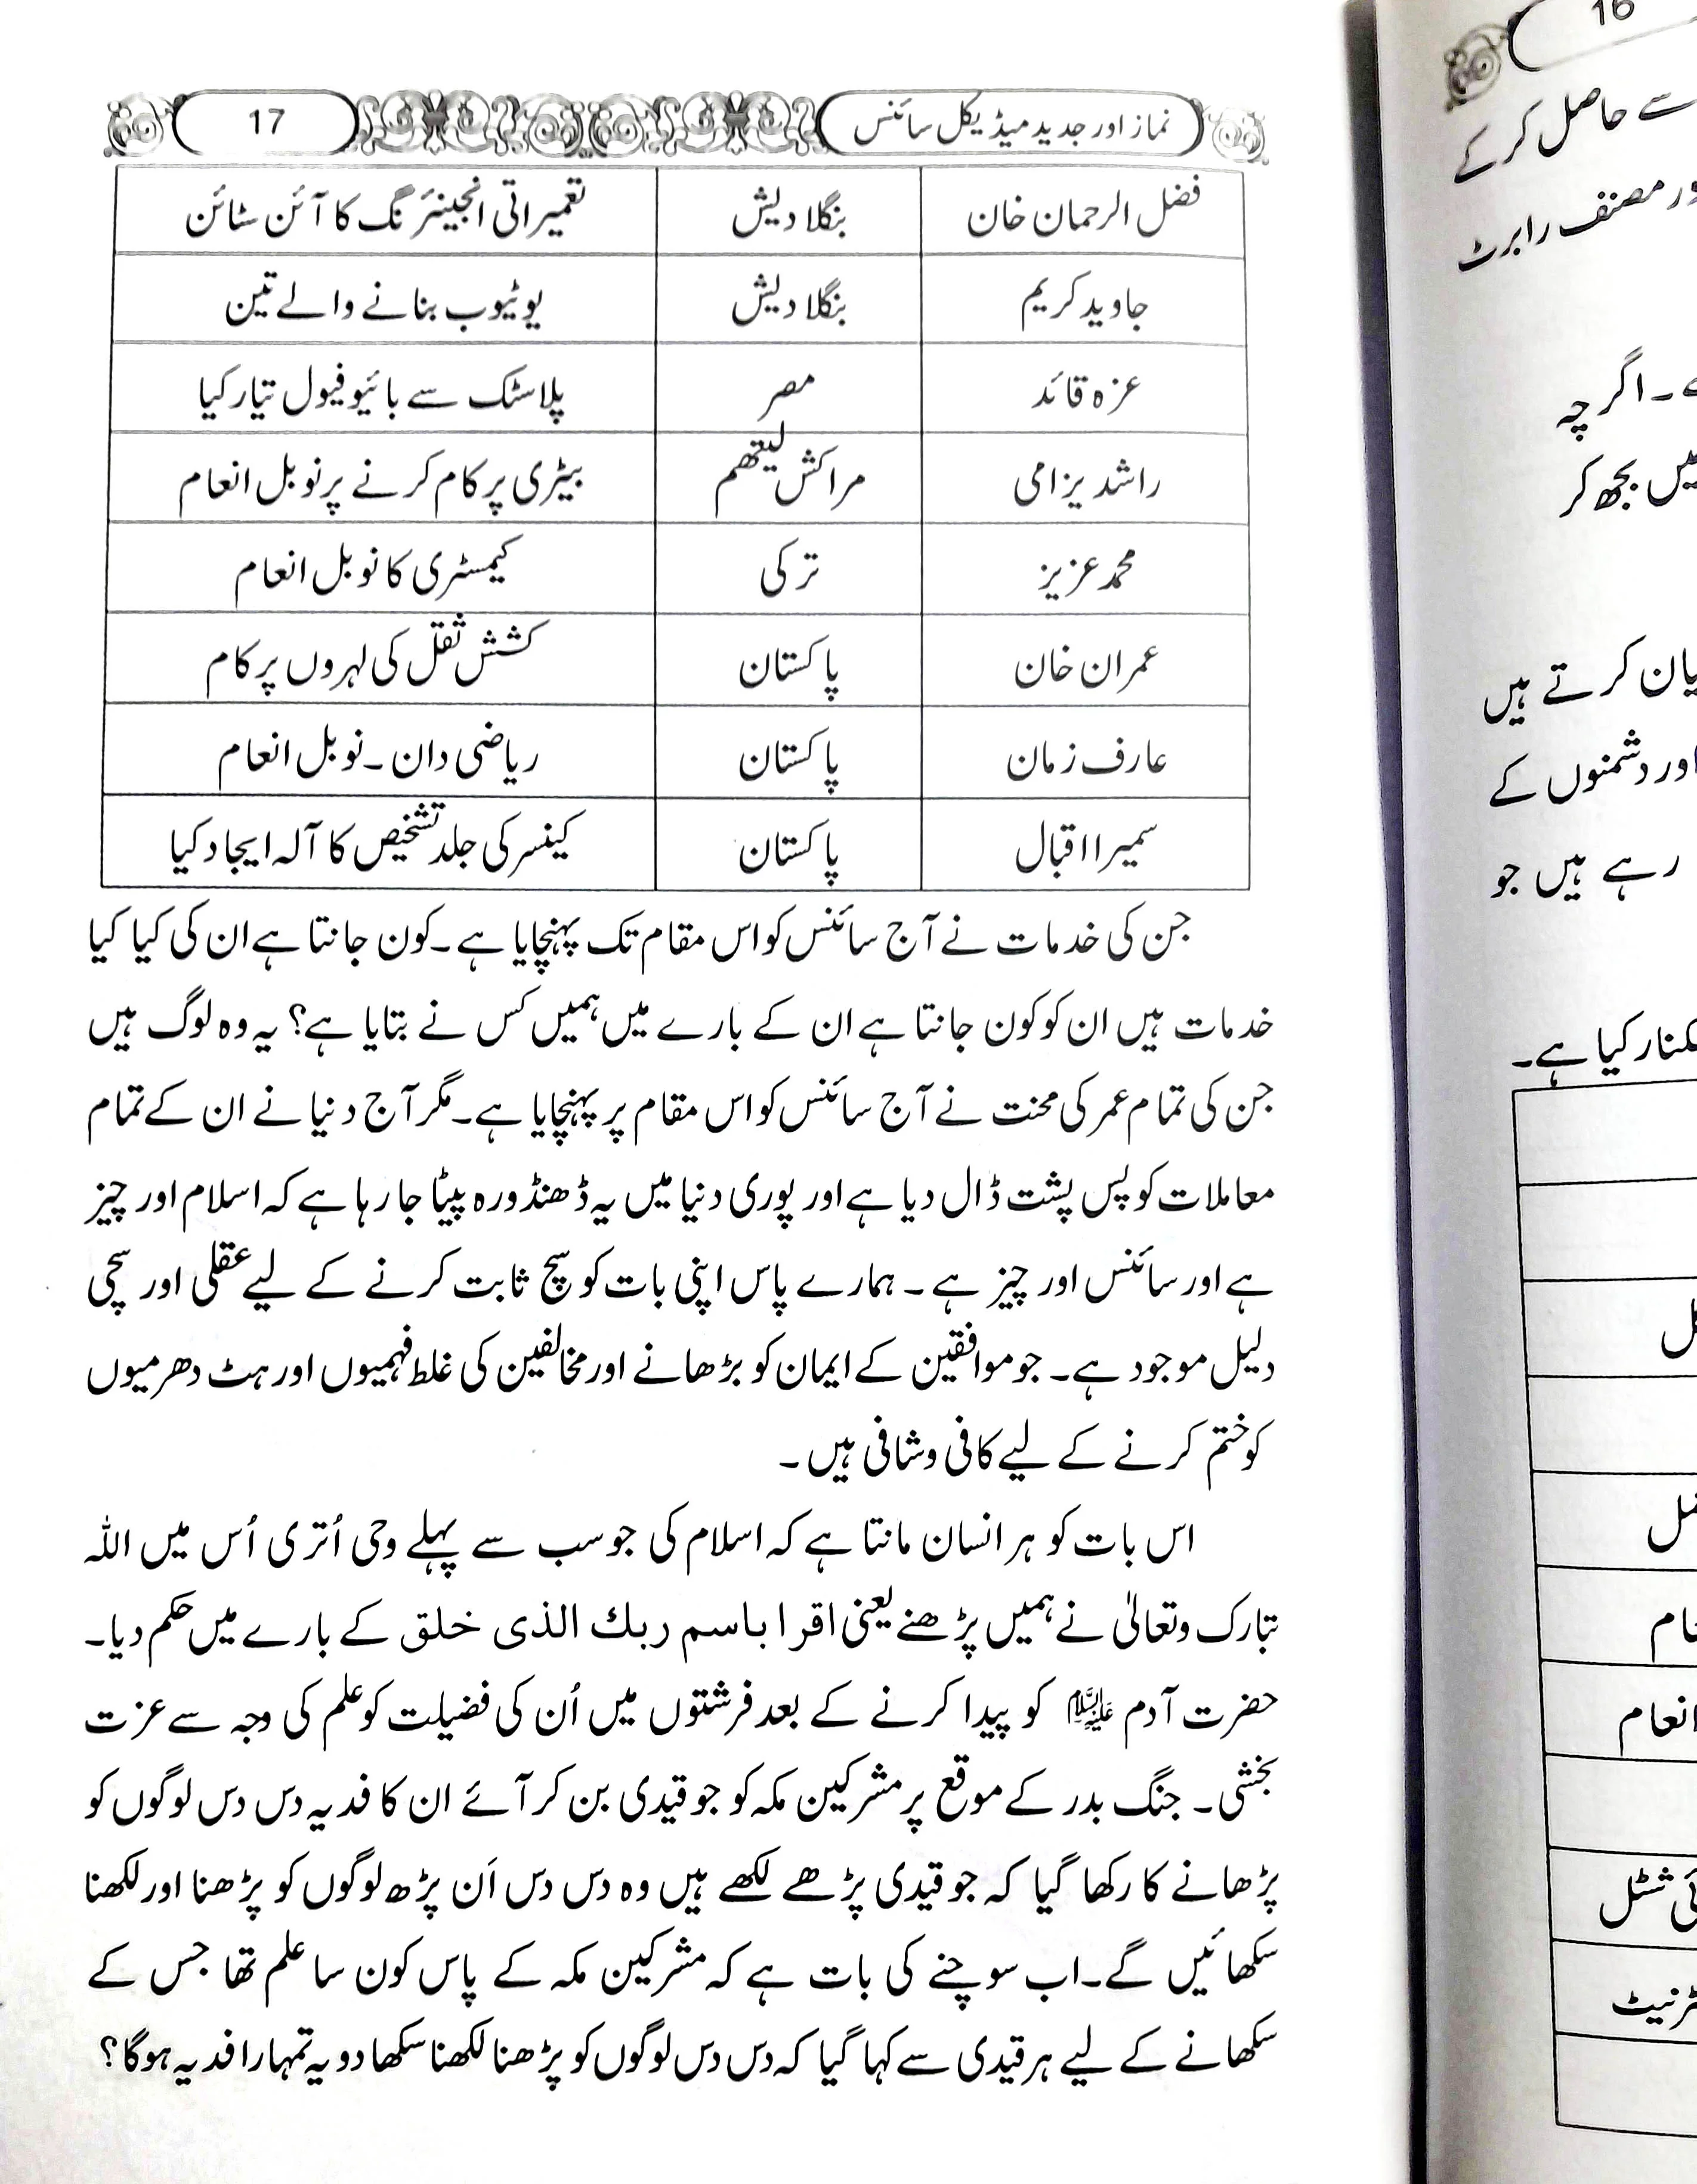 نماز اور جدید میڈیکل سائنس 17
فضل الرحمان خان بنگلا دیش تعمیراتی انجینئرنگ کا آئن سٹائن
جاوید کریم بنگلا دیش یوٹیوب بنانے والے تین
عزہ قائد مصر پلاسٹک سے بائیو فیول تیار کیا
راشد یزامی مراکش لیتھم بیٹری پر کام کرنے پر نوبل انعام
محمد عزیز ترکی کیمسٹری کا نوبل انعام
عمران خان پاکستان کشش ثقل کی لہروں پر کام
عارف زمان پاکستان ریاضی دان۔ نوبل انعام
سمیرا اقبال پاکستان کینسر کی جلد تشخیص کا آلہ ایجاد کیا
جن کی خدمات نے آج سائنس کو اس مقام تک پہنچایا ہے۔ کون جانتا ہے ان کی کیا کیا
خدمات ہیں ان کو کون جانتا ہے ان کے بارے میں ہمیں کس نے بتایا ہے؟ یہ وہ لوگ ہیں
جن کی تمام عمر کی محنت نے آج سائنس کو اس مقام پر پہنچایا ہے۔ مگر آج دنیا نے ان کے تمام
معاملات کو پس پشت ڈال دیا ہے اور پوری دنیا میں یہ ڈھنڈورہ پیٹا جا رہا ہے کہ اسلام اور چیز
ہے اور سائنس اور چیز ہے۔ ہمارے پاس اپنی بات کو سچ ثابت کرنے کے لیے عقلی اور سچی
دلیل موجود ہے۔ جو موافقین کے ایمان کو بڑھانے اور مخالفین کی غلط فہمیوں اور ہٹ دھرمیوں
کو ختم کرنے کے لیے کافی و شافی ہیں۔
اس بات کو ہر انسان مانتا ہے کہ اسلام کی جو سب سے پہلے وحی اُتری اُس میں اللہ
تبارک وتعالیٰ نے ہمیں پڑھنے یعنی اقرا باسم ربك الذی خلق کے بارے میں حکم دیا۔
حضرت آدم علیہ السلام کو پیدا کرنے کے بعد فرشتوں میں اُن کی فضیلت کو علم کی وجہ سے عزت
بخشی۔ جنگ بدر کے موقع پر مشرکین مکہ کو جو قیدی بن کر آئے ان کا فدیہ دس دس لوگوں کو
پڑھانے کا رکھا گیا کہ جو قیدی پڑھے لکھے ہیں وہ دس دس اَن پڑھ لوگوں کو پڑھنا اور لکھنا
سکھائیں گے۔ اب سوچنے کی بات ہے کہ مشرکین مکہ کے پاس کون سا علم تھا جس کے
سکھانے کے لیے ہر قیدی سے کہا گیا کہ دس دس لوگوں کو پڑھنا لکھنا سکھا دو یہ تمہارا فدیہ ہوگا؟
16
سے حاصل کر کے
مصنف رابرٹ
۔ اگر چہ
بجھ کر
کرتے ہیں
اور دشمنوں کے
رہے ہیں جو
کیا ہے۔
انعام